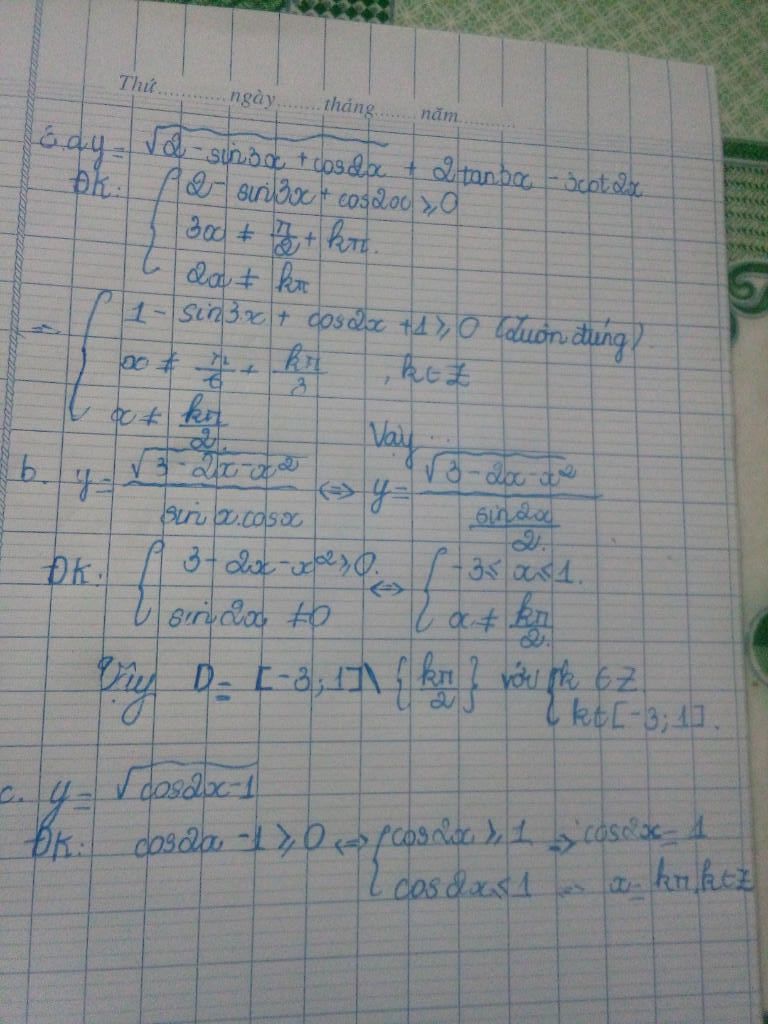 Thứ............ngày........tháng........năm............
a y = √(2 - sin3x + cos2x) + 2tan3x - 3cot2x
ĐK: { 2 - sin3x + cos2x ≥ 0
3x ≠ π/2 + kπ.
2x ≠ kπ
= { 1 - sin3x + cos2x + 1 ≥ 0 (luôn đúng).
x ≠ π/6 + kπ/3 , k ∈ Z
x ≠ kπ/2.
Vậy ...
b. y = √(3 - 2x - x²) / sin x.cosx ⇔ y = √(3 - 2x - x²) / (sin2x/2.)
ĐK: { 3 - 2x - x² ≥ 0. ⇔ { -3 ≤ x ≤ 1.
sin 2x ≠ 0 x ≠ kπ/2.
Vậy D = [-3; 1] \ {kπ/2} với { k ∈ Z
k ∈ [-3; 1].
c. y = √(cos2x - 1)
ĐK: cos2x - 1 ≥ 0 ⇔ { cos2x ≥ 1 => cos2x = 1
cos2x ≤ 1 = x = kπ, k ∈ Z